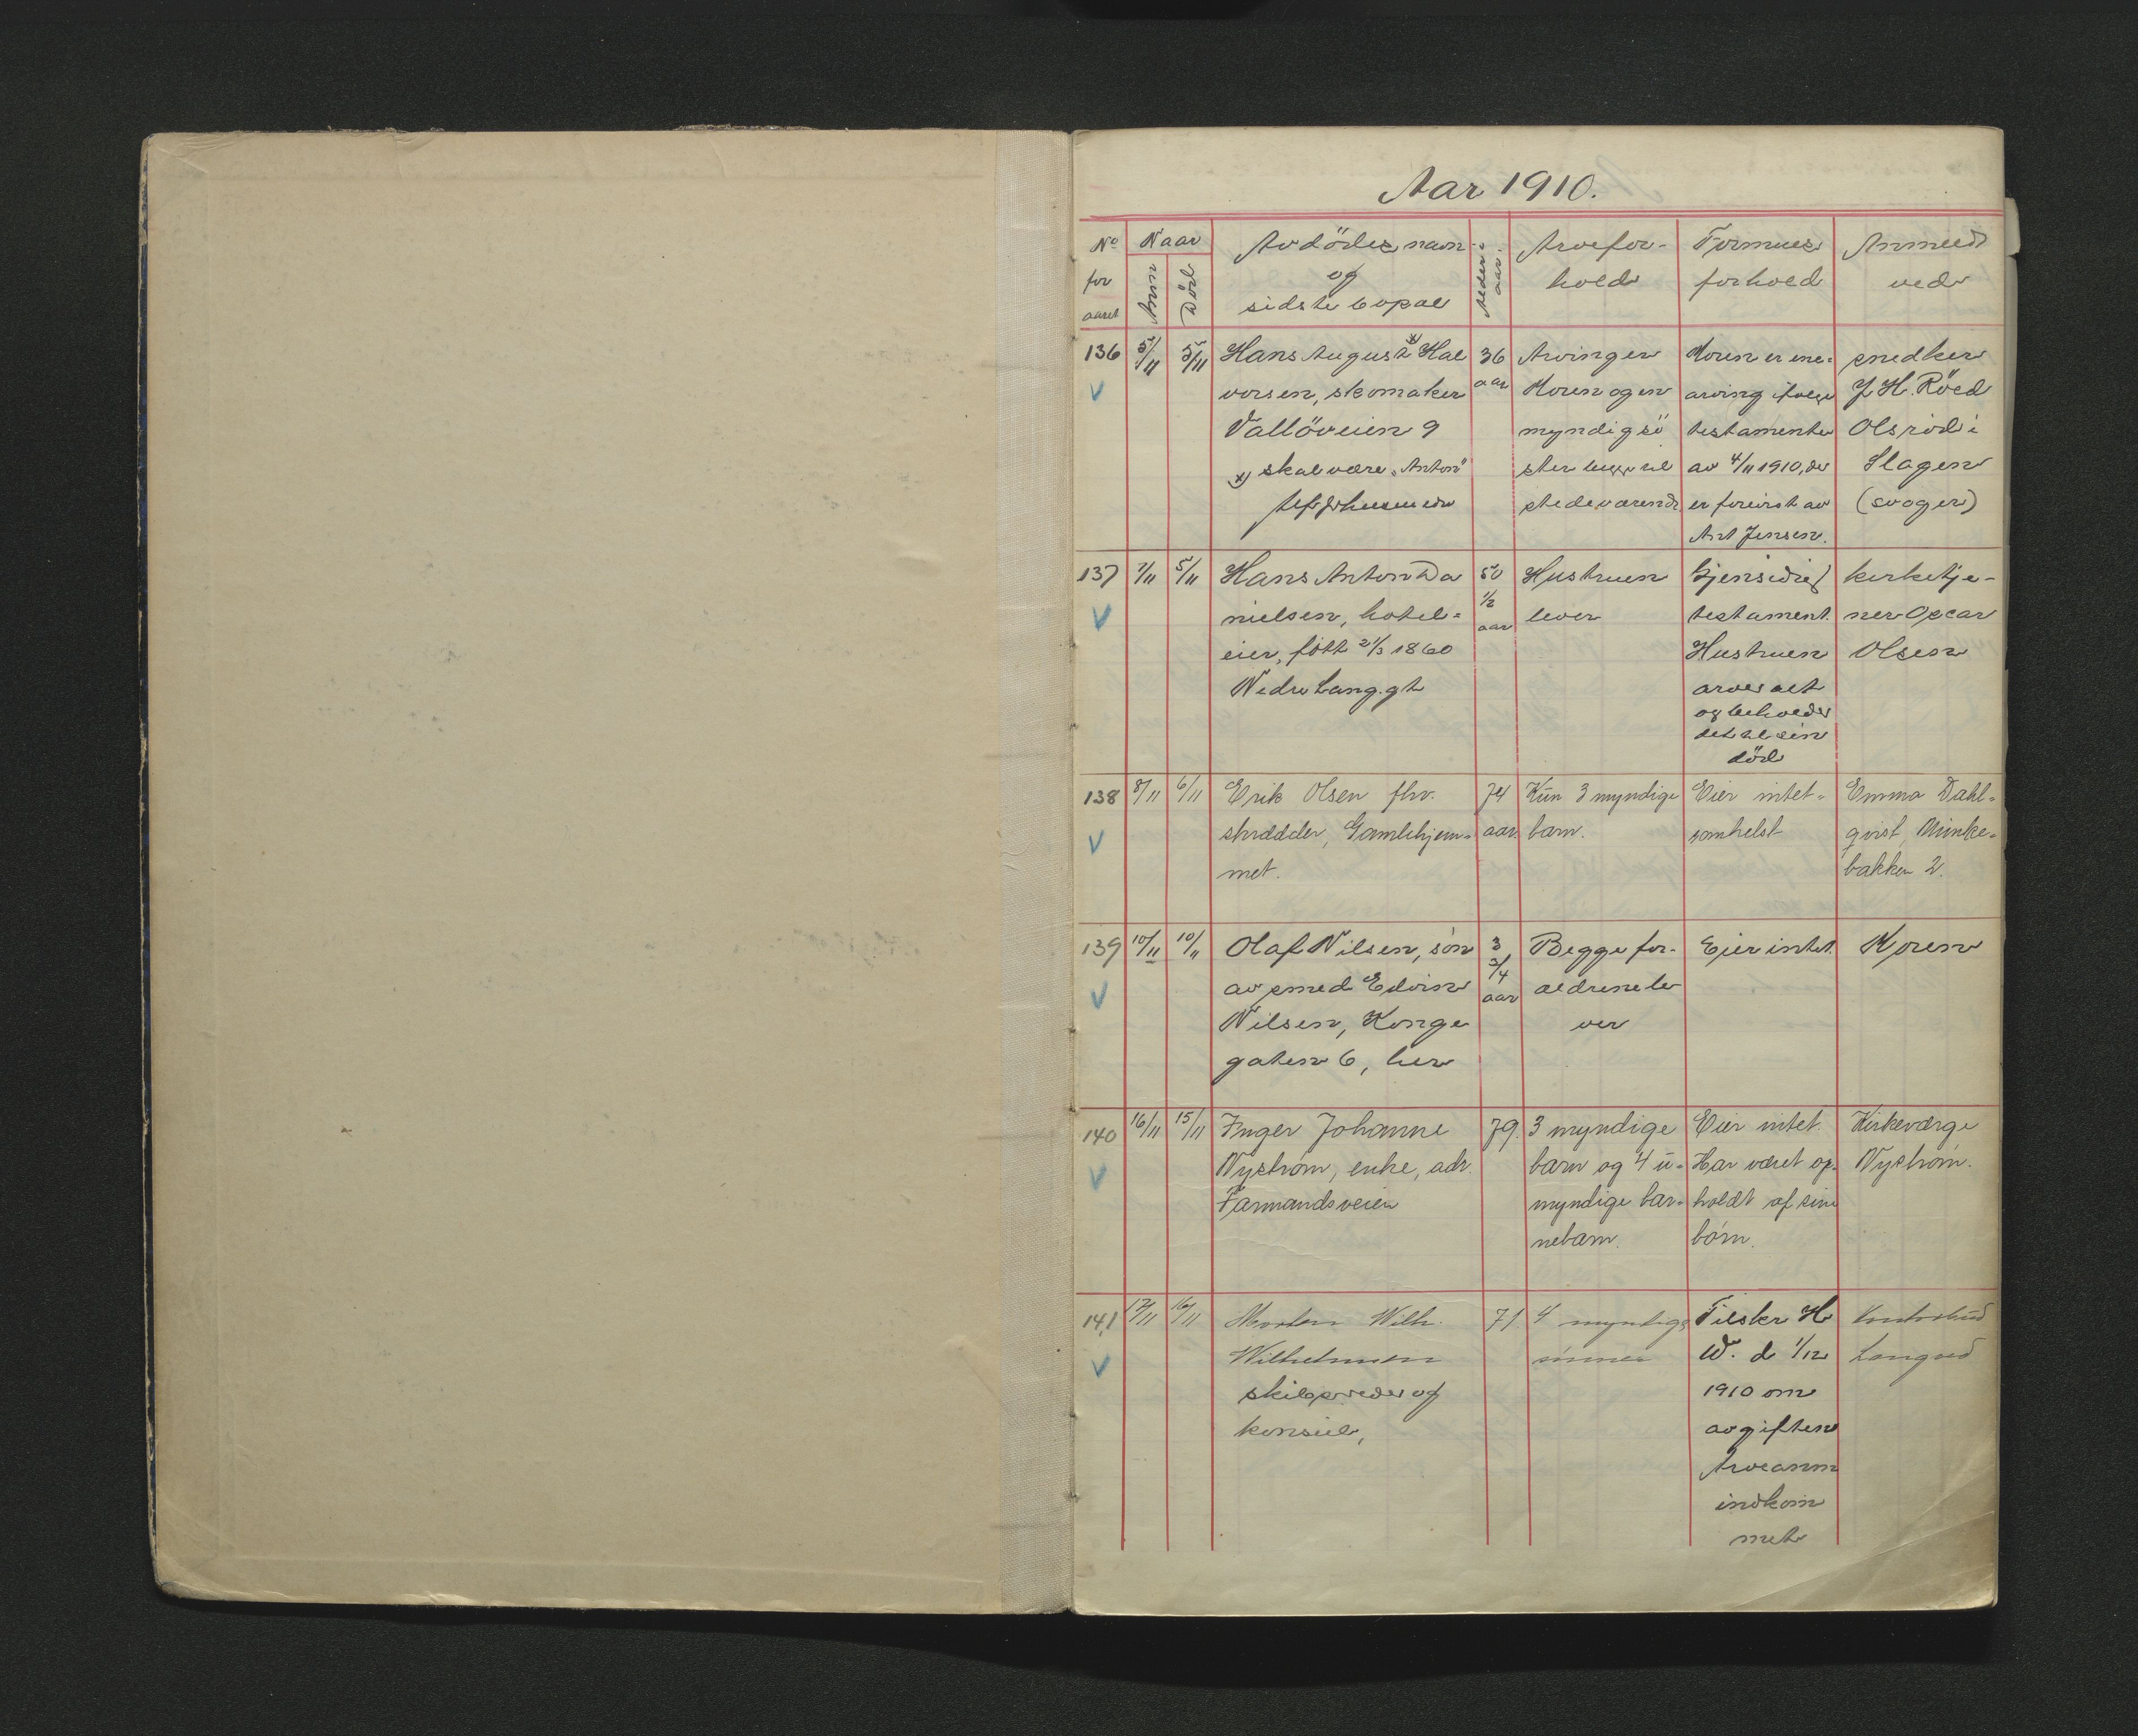 Aar 1910.
No for aaret
Naar
Anm
Död
Avdödes navn
og
sidste bopæl
Alder aar
Arvefor-
hold
Formues
forhold
Anmeldt
ved
136 5/11 5/11
Hans August x) Hal
vorsen, skomaker
Vallöveien 9
x) skal være "Anton"
36
aar
Arvinger
Moren og en
myndig sö
ster begge til
stedeværende
Moren er ene=
arving ifølge
testamente
av 4/11 1910, der
er forevist av
Ant Jensen.
snedker
J. H. Röed
Olsröd i
Slagen
(svoger)
137 7/11 5/11
Hans Anton Da
nielsen, hotel=
eier, född 21/3 1860
Nedre Lang.gt
50
1/2
aar
Hustruen
lever
Gjensidig
testament.
Hustruen
arver alt
og beholder
det til sin
död
kirketje-
ner Oscar
Olsen
138 8/11 6/11
Erik Olsen fhv.
skrædder, Gamlehjem=
met.
74
aar.
Kun 3 myndige
barn.
Eier intet=
somhelst
Emma Dahl=
qvist, Munke=
bakken 2.
139 10/11 10/11
Olaf Nilsen, sön
av smed Edvin
Nilsen, Konge
gaten 6, her
3
3/4
aar
Begge for-
ældrene le
ver
Eier intet.
Moren
140 16/11 15/11
Inger Johanne
Nyström, enke, adr.
Farmandsveien
79.
3 myndige
barn og 4 u=
myndige bar=
nebarn.
Eier intet.
Har været op=
holdt af sine
börn.
Kirkeværge
Nyström.
141 17/11 16/11
Morten Wilh.
Wilhelmsen
skibsreder og
konsul,
71
4 myndige
sönner
Tilskr H
W. d 1/12
1910 om
avgiften
Arveanm
indkom
met
Kontorbud